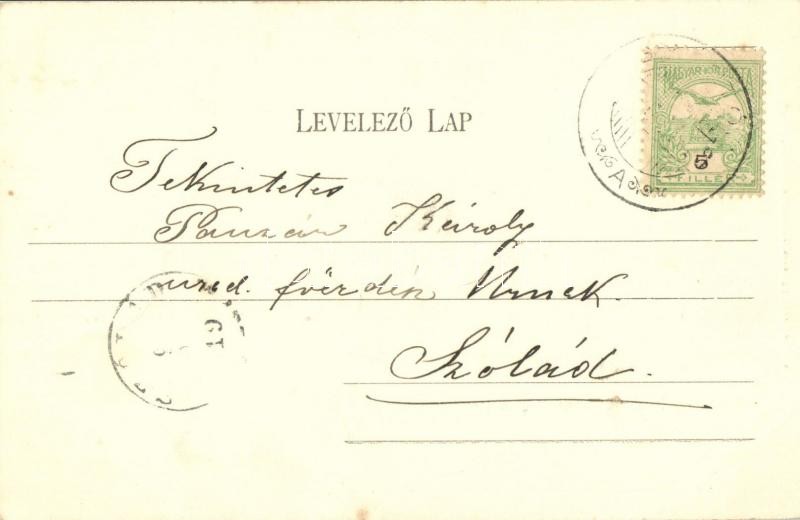 LEVELEZŐ LAP
MAGYAR KIR. POSTA
5
FILLÉR
Tekintetes
Károly
urad. főerdész Urnak
Szólád.